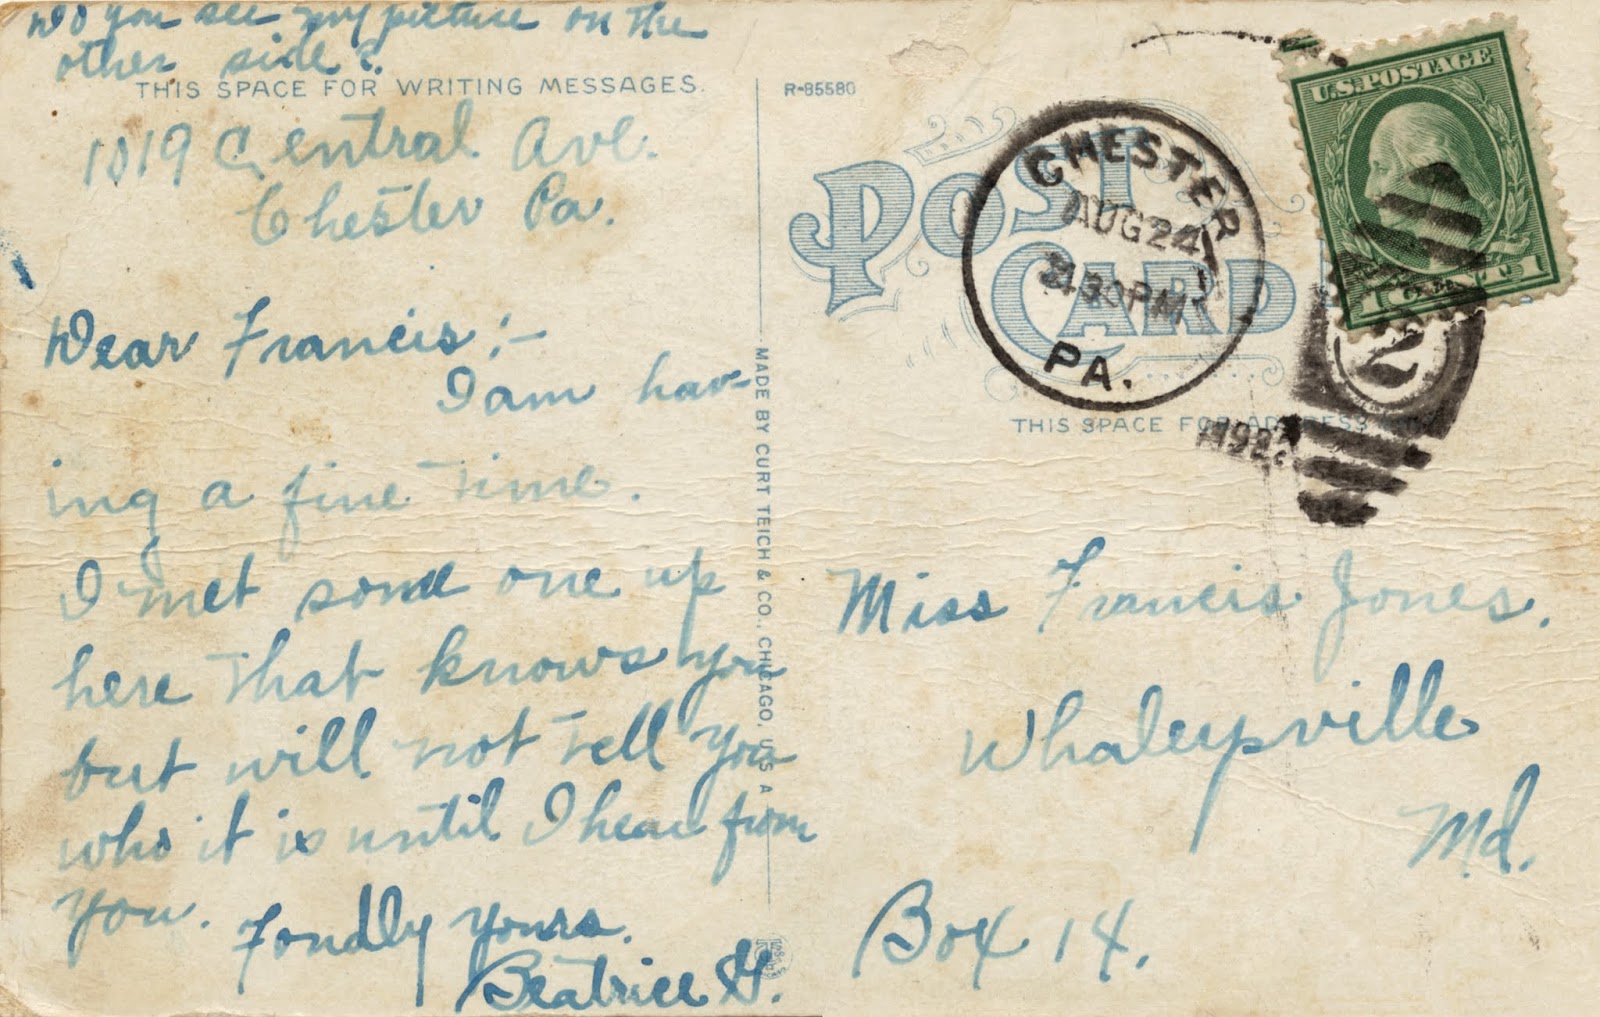 Do you see my picture on the
other side?
THIS SPACE FOR WRITING MESSAGES.
1019 Central Ave.
Chester Pa.
Dear Francis:-
I am hav-
ing a fine time.
I met some one up
here that knows you
but will not tell you
who it is until I hear from
you.
Fondly yours.
Beatrice H.
MADE BY CURT TEICH & CO., CHICAGO, U.S.A.
R-85580
POST
CARD
CHESTER
AUG 24
430 PM
PA.
U.S. POSTAGE
1 CENT 1
2
THIS SPACE FOR ADDRESS
Miss Francis Jones.
Whaleyville
Md.
Box 14.